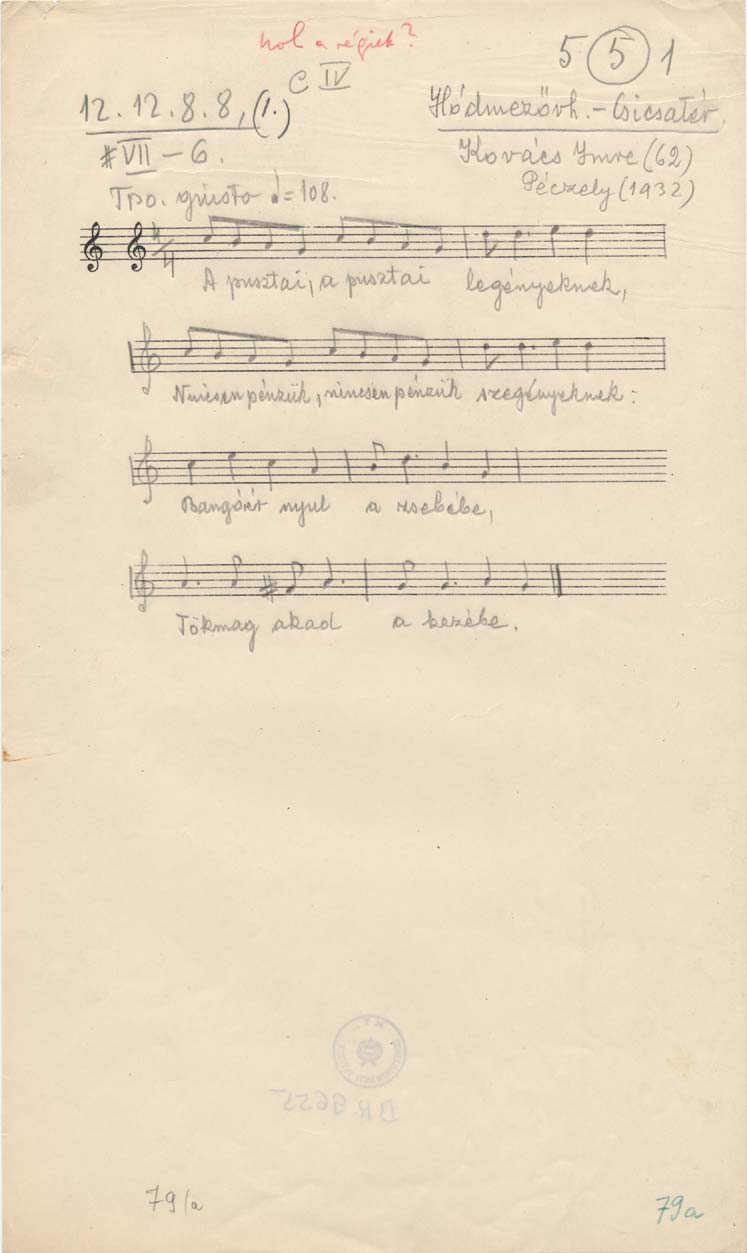 hol a régiek?
5 5 1
C IV
12. 12. 8. 8, (1.)
Hódmezővh. - Csicsatér.
#VII - 6.
Kovács Imre (62)
Péczely (1932)
Tpo. giusto ♩= 108.
4/4
A pusztai, a pusztai legényeknek,
Nincsen pénzük, nincsen pénzük szegényeknek:
Bangóért nyul a zsebébe,
Tökmag akad a kezébe.
79/a
79a